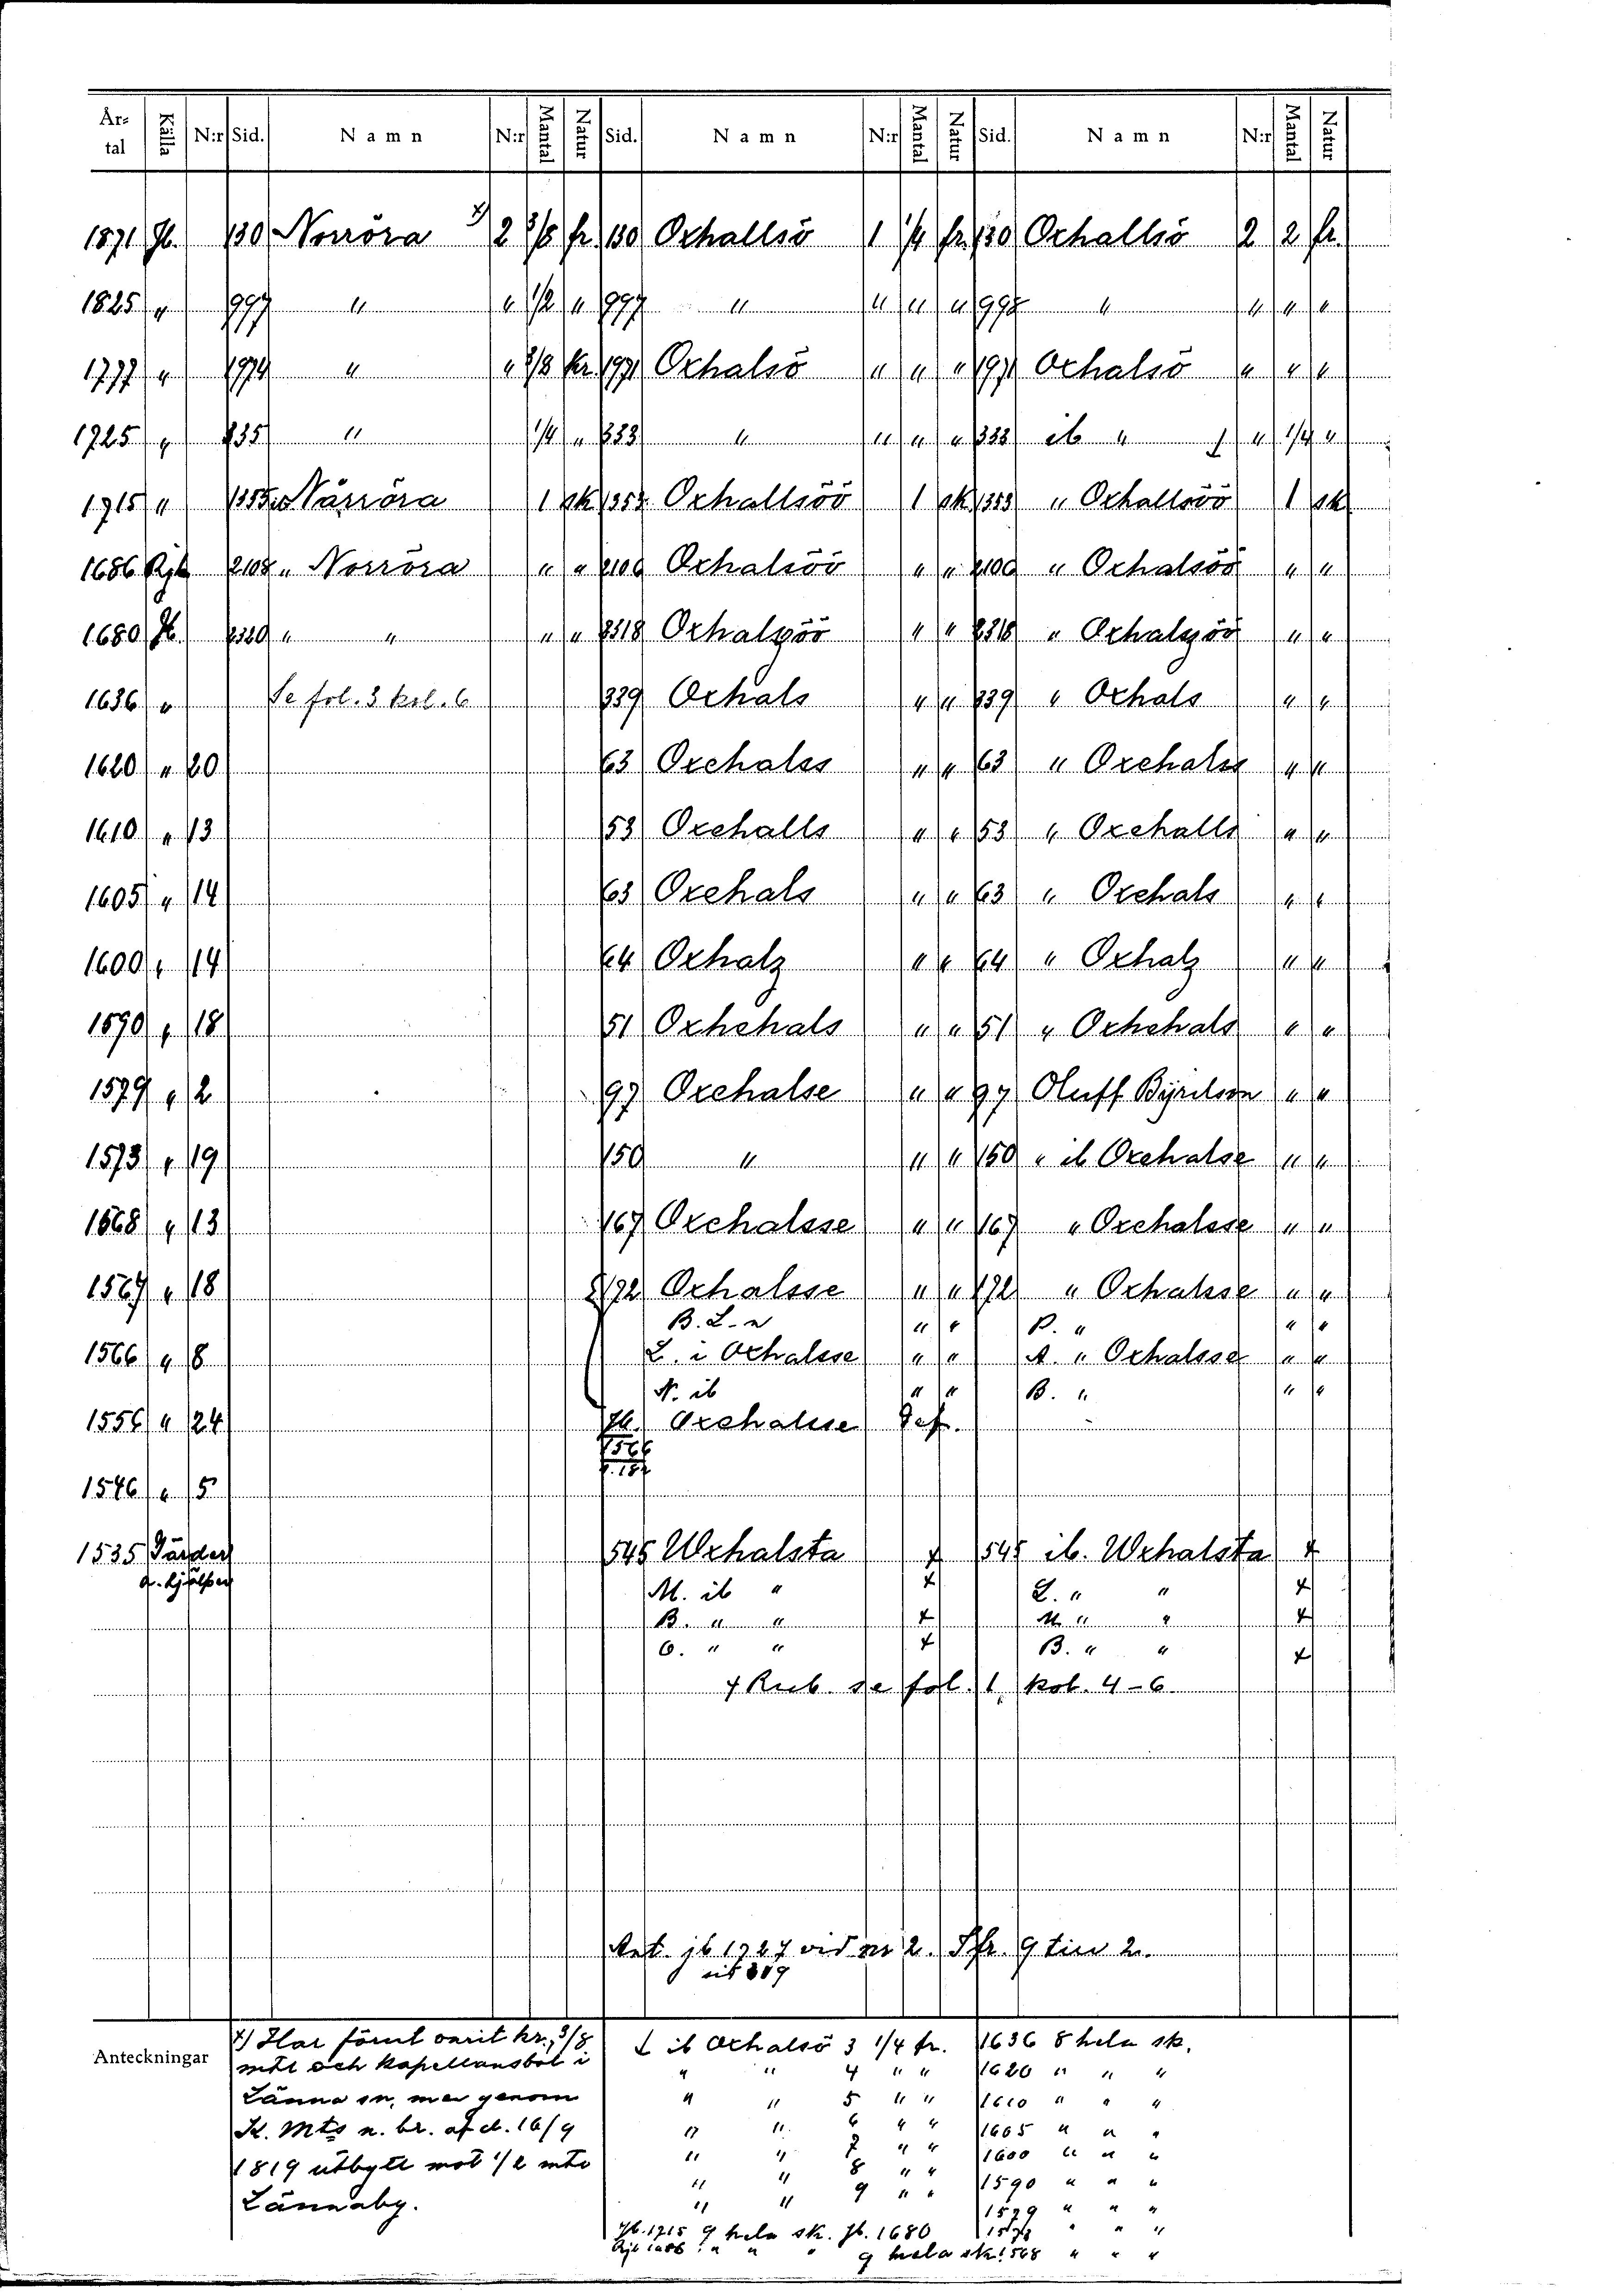 År-tal Källa N:r Sid. Namn N:r Mantal Natur Sid. Namn N:r Mantal Natur Sid. Namn N:r Mantal Natur
1871 Jb. 130 Norröra x) 2 3/8 fr. 130 Oxhallsö 1 1/4 fr. 130 Oxhallsö 2 2 fr.
1825 " 997 " " 1/2 " 997 " " " " 998 " " " "
1777 " 1974 " " 3/8 kr. 1971 Oxhalsö " " " 1971 Oxhalsö " " "
1725 " 335 " 1/4 " 333 " " " " 333 ib " " 1/4 "
1715 " 1355 Nårröra 1 sk 1353 Oxhallsöö 1 sk 1353 " Oxhallsöö 1 sk
1686 Rjb 2108 " Norröra " " 2106 Oxhalsöö " " 2106 " Oxhalsöö " "
1680 Jb. 2320 " " " " 2318 Oxhalzöö " " 2318 " Oxhalzöö " "
1636 " Se fol. 3 kol. 6 339 Oxhals " " 339 " Oxhals " "
1620 " 20 63 Oxehalss " " 63 " Oxehalss " "
1610 " 13 53 Oxehalls " " 53 " Oxehalls " "
1605 " 14 63 Oxehals " " 63 " Oxehals " "
1600 " 14 64 Oxhalz " " 64 " Oxhalz " "
1590 " 18 51 Oxhehals " " 51 " Oxhehals " "
1579 " 2 97 Oxehalse " " 97 Oluff " "
1573 " 19 150 " " " 150 " ib Oxehalse " "
1568 " 13 167 Oxehalsse " " 167 " Oxehalsse " "
1567 " 18 172 Oxhalsse " " 172 " Oxhalsse " "
B. L-n " " P. " " "
1566 " 8 L. i Oxhalsse " " A. " Oxhalsse " "
N. ib " " B. " " "
1556 " 24 Jb. Oxehalsse Def.
1566
f. 182
1546 " 5
1535 Gärder 545 Uxhalsta x 545 ib. Uxhalsta x
o. hjälper M. ib " x L. " " x
B. " " x M. " " x
O. " " x B. " " x
x Rub. se fol. 1, kol. 4-6
Ant. jb 1727 vid nr 2. Sfr. 9 tili 2.
sid 309
Anteckningar
x) Har förut varit kr., 3/8
mtl och kapellansbol i
Länna sn, men genom
K. Mts n. br. af d. 16/9
1819 utbytt mot 1/2 mtl
Lännaby.
ib Oxhalsö 3 1/4 fr.
" " 4 " "
" " 5 " "
" " 6 " "
" " 7 " "
" " 8 " "
" " 9 " "
Jb. 1715 9 hela sk. Jb. 1680
Rjb 1686 " " " 9 hela sk.
1636 8 hela sk.
1620 " " "
1610 " " "
1605 " " "
1600 " " "
1590 " " "
1579 " " "
1573 " " "
1568 " " "